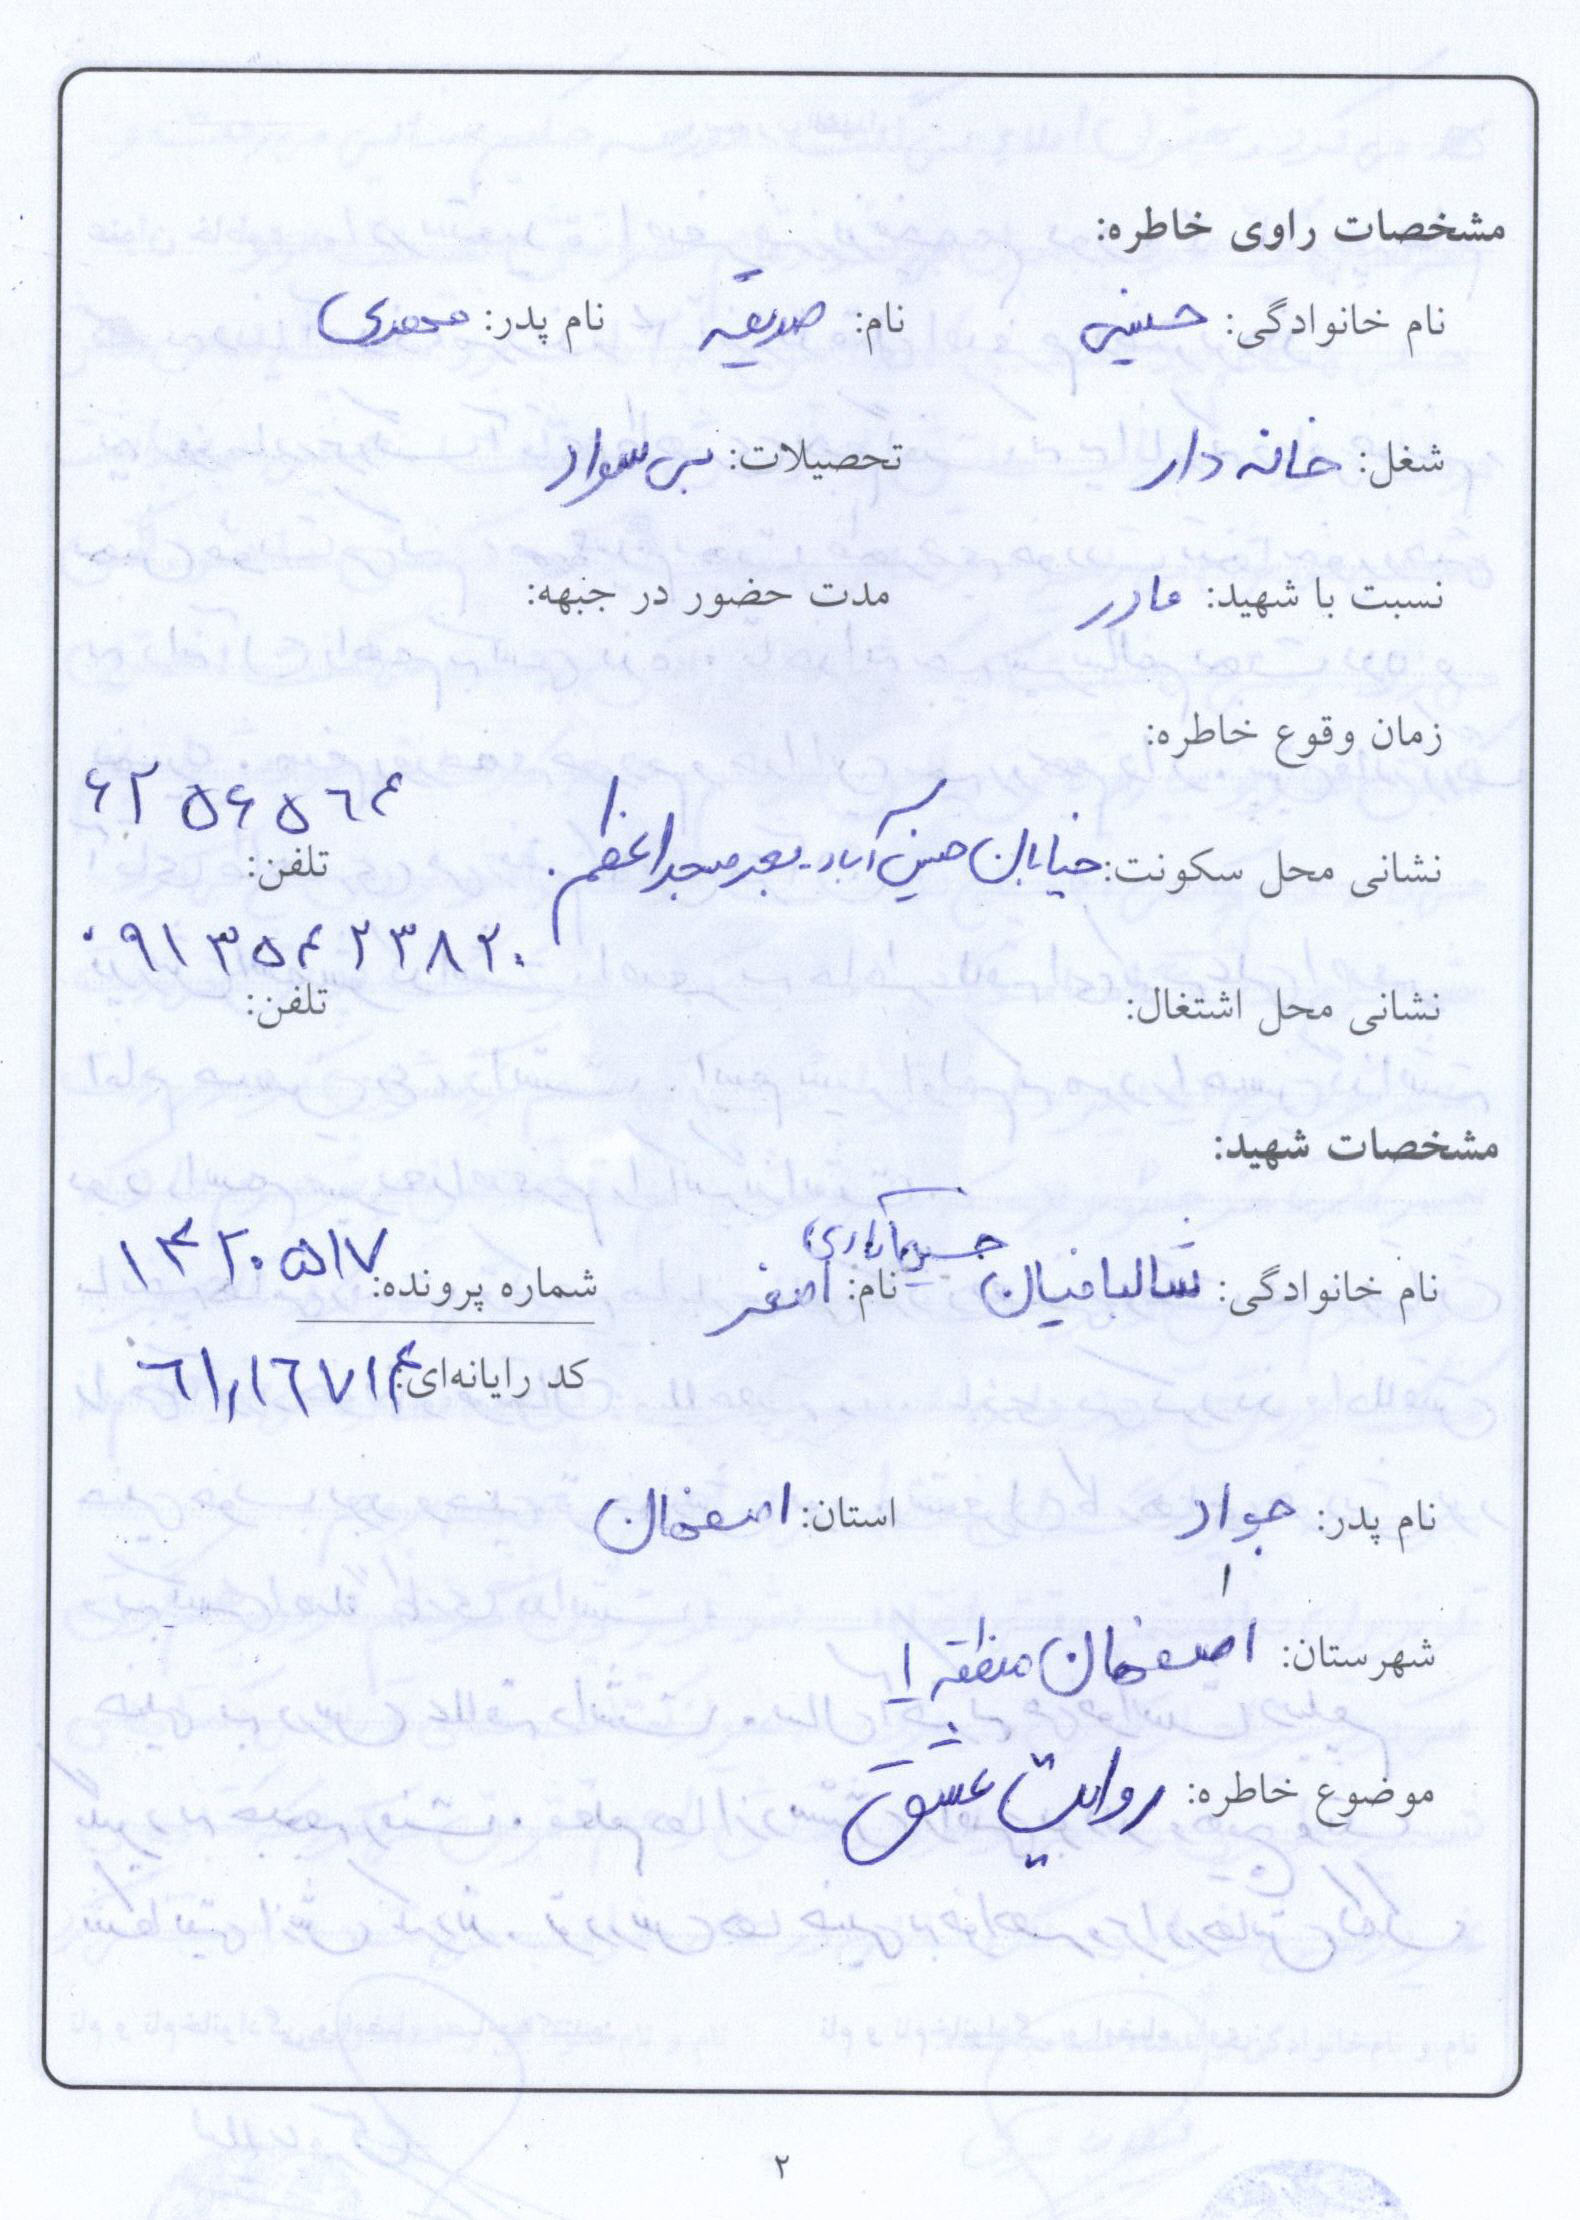 مشخصات راوی خاطره:
نام خانوادگی: حسینی نام: صدیقه نام پدر: محمدی
شغل: خانه دار تحصیلات: بی سواد
نسبت با شهید: مادر مدت حضور در جبهه:
زمان وقوع خاطره:
۶۲۵۶۵۶۴
نشانی محل سکونت: خیابان حسین آباد - بعد مسجد اعظم. تلفن:
۰۹۱۳۵۴۲۳۸۲۰
نشانی محل اشتغال: تلفن:
مشخصات شهید:
نام خانوادگی: شالبافیان حسین آبادی نام: اصغر شماره پرونده: ۱۴۲۰۵۱۷
کد رایانه‌ای: ۶۱۰۱۶۷۱۴
نام پدر: جواد استان: اصفهان
شهرستان: اصفهان منطقه ۱
موضوع خاطره: روایت عشق
۲